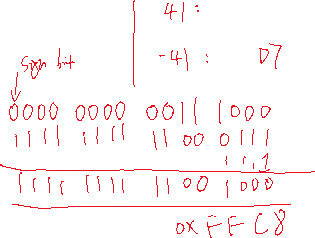 41:
-41: D7
Sign bit
0000 0000 0011 1000
1111 1111 1100 0111
1 1 1
1111 1111 1100 1000
0x FF C8